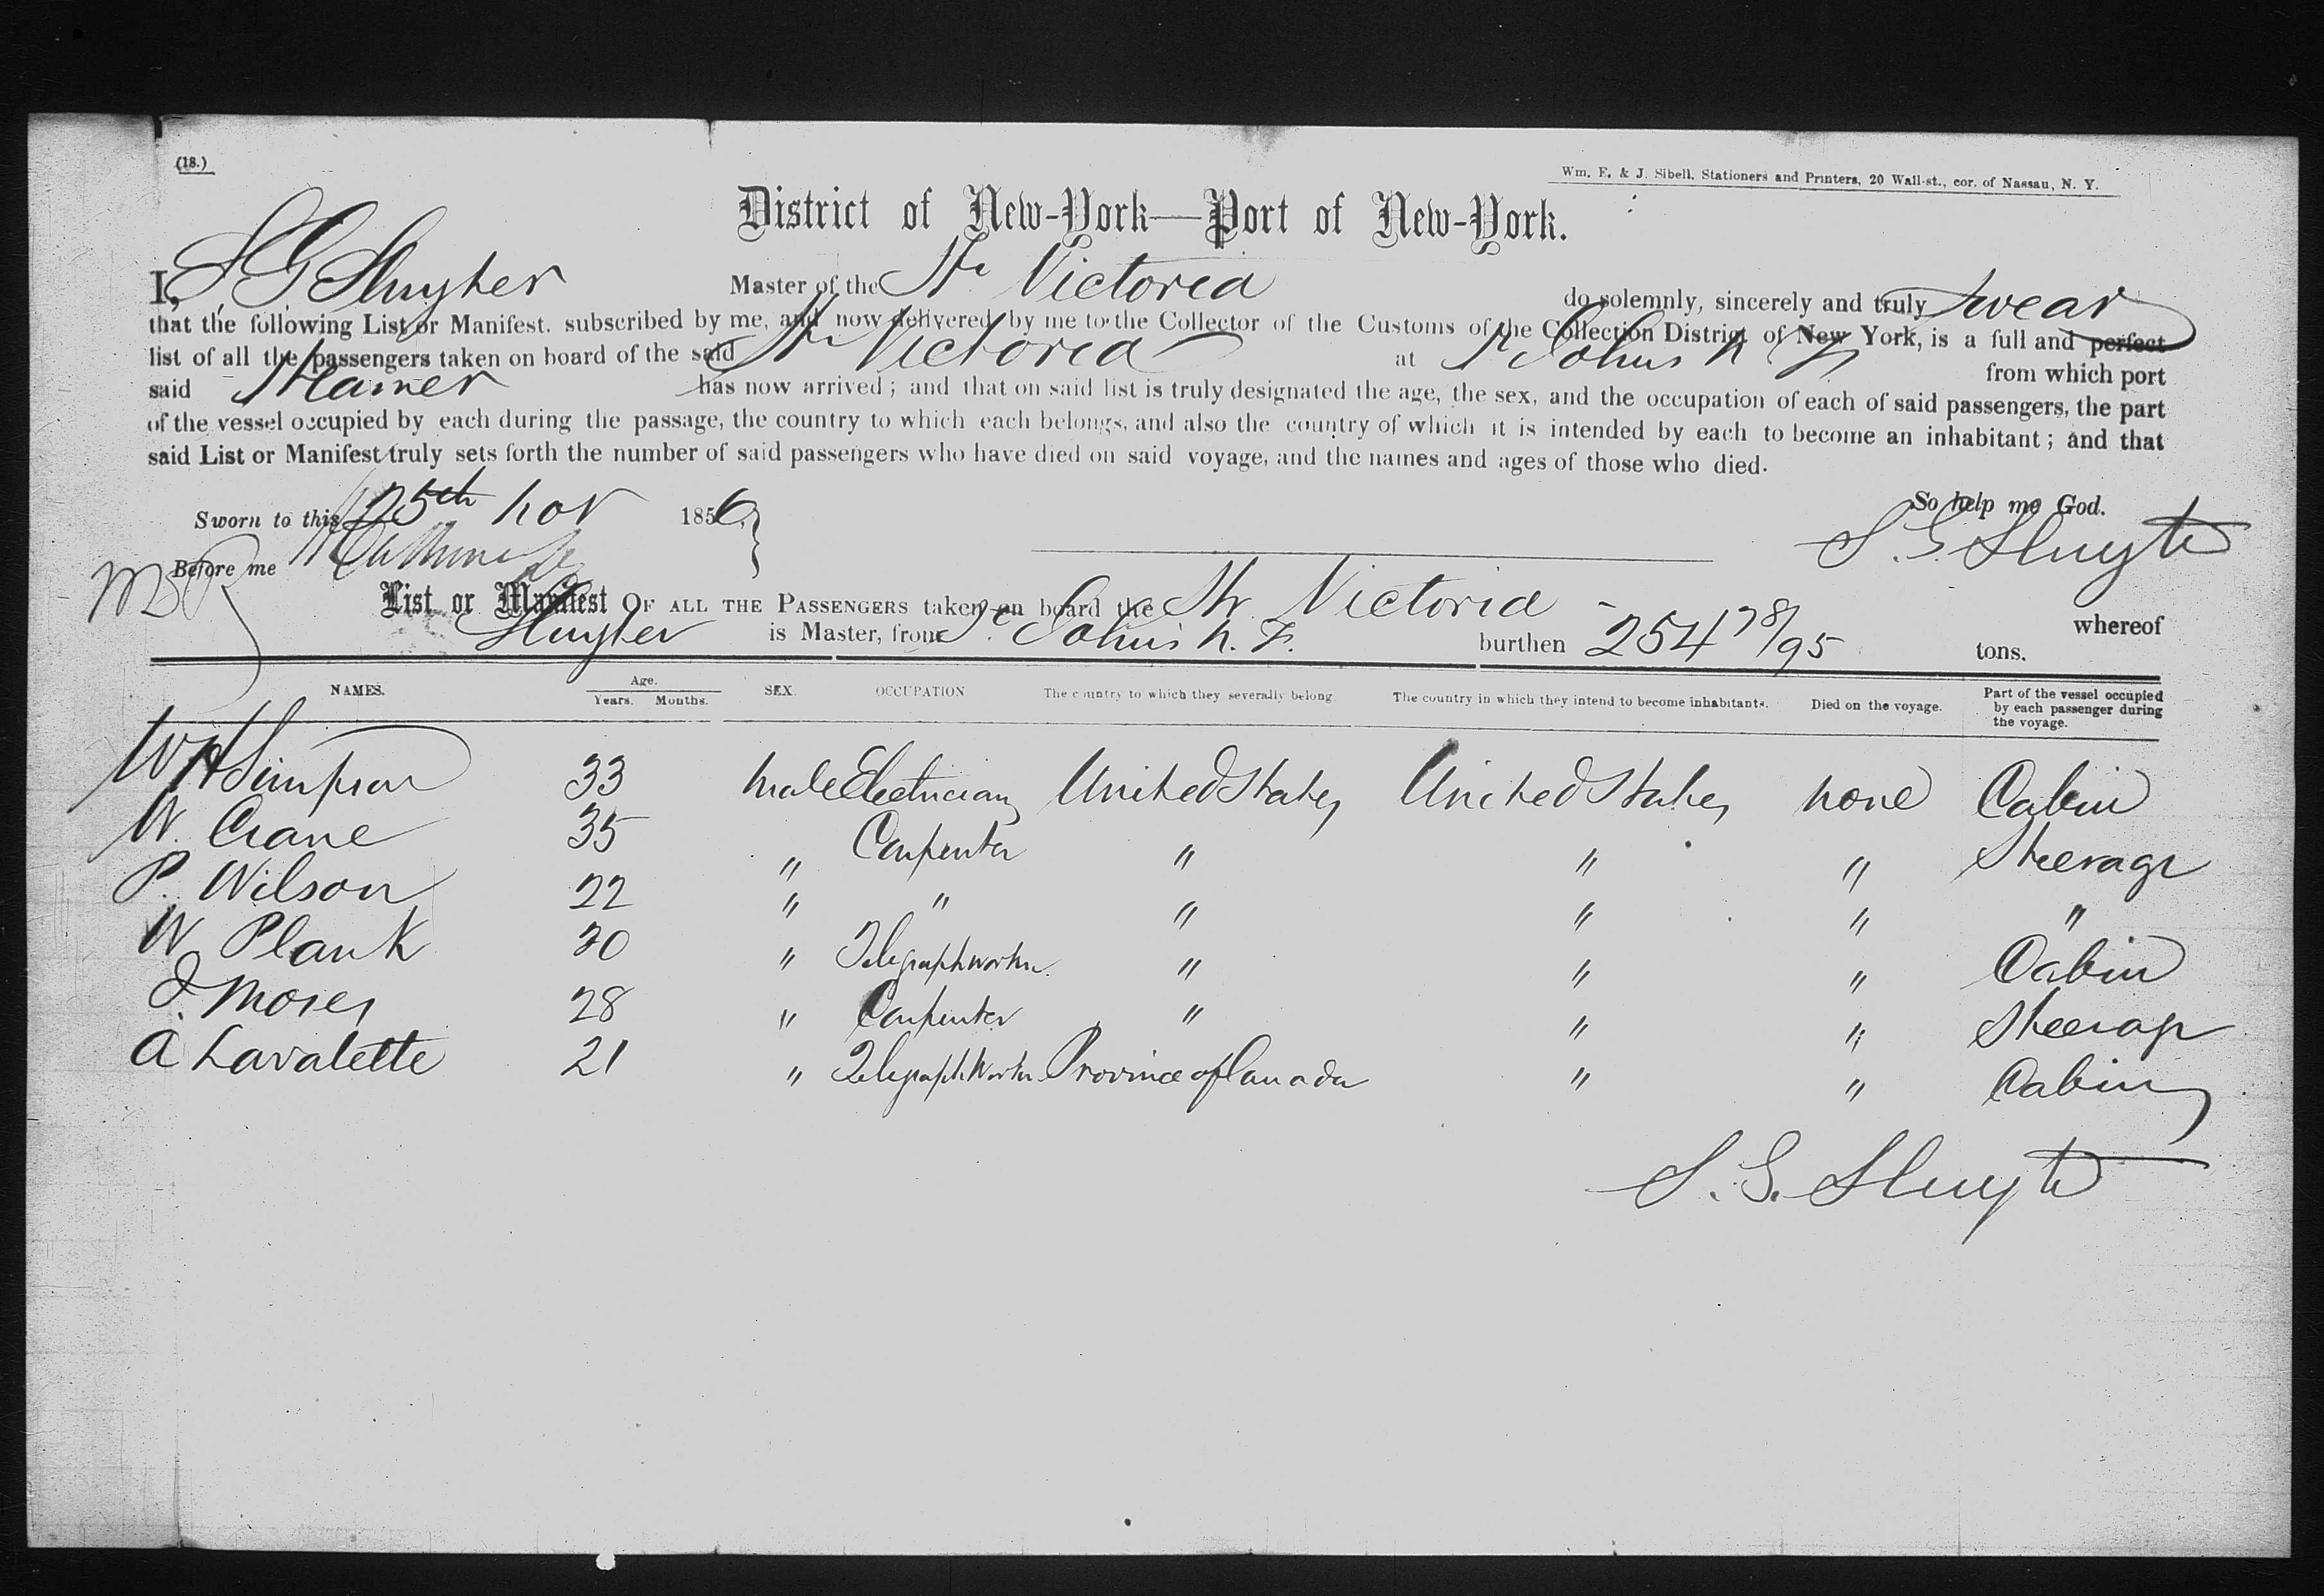 (18.)
Wm. E. & J. Sibell, Stationers and Printers, 20 Wall-st., cor. of Nassau, N. Y.
District of New-York—Port of New-York.
I, S G Sluyter Master of the Str Victoria do solemnly, sincerely and truly swear
that the following List or Manifest. subscribed by me, and now delivered by me to the Collector of the Customs of the Collection District of New York, is a full and perfect
list of all the passengers taken on board of the said Str Victoria at St Johns N F from which port
said Steamer has now arrived; and that on said list is truly designated the age, the sex, and the occupation of each of said passengers, the part
of the vessel occupied by each during the passage, the country to which each belongs, and also the country of which it is intended by each to become an inhabitant; and that
said List or Manifest truly sets forth the number of said passengers who have died on said voyage, and the names and ages of those who died.
So help me God.
Sworn to this 25th Nov 1856,
S. G. Sluyter
Before me
List or Manifest OF ALL THE PASSENGERS taken on board the Str Victoria whereof
Sluyter is Master, from St Johns N. F. burthen 254 78/95 tons.
NAMES. Age. Years. Months. SEX. OCCUPATION The country to which they severally belong. The country in which they intend to become inhabitants. Died on the voyage. Part of the vessel occupied by each passenger during the voyage.
W H Simpson 33 male Electrician United States United States none Cabin
W. Crane 35 " Carpenter " " " Steerage
P. Wilson 22 " " " " " "
W Plank 30 " Telegraph worker. " " " Cabin
J. Moses 28 " Carpenter " " " Steerage
A Lavalette 21 " Telegraph Worker Province of Canada " " Cabin
S. G. Sluyter